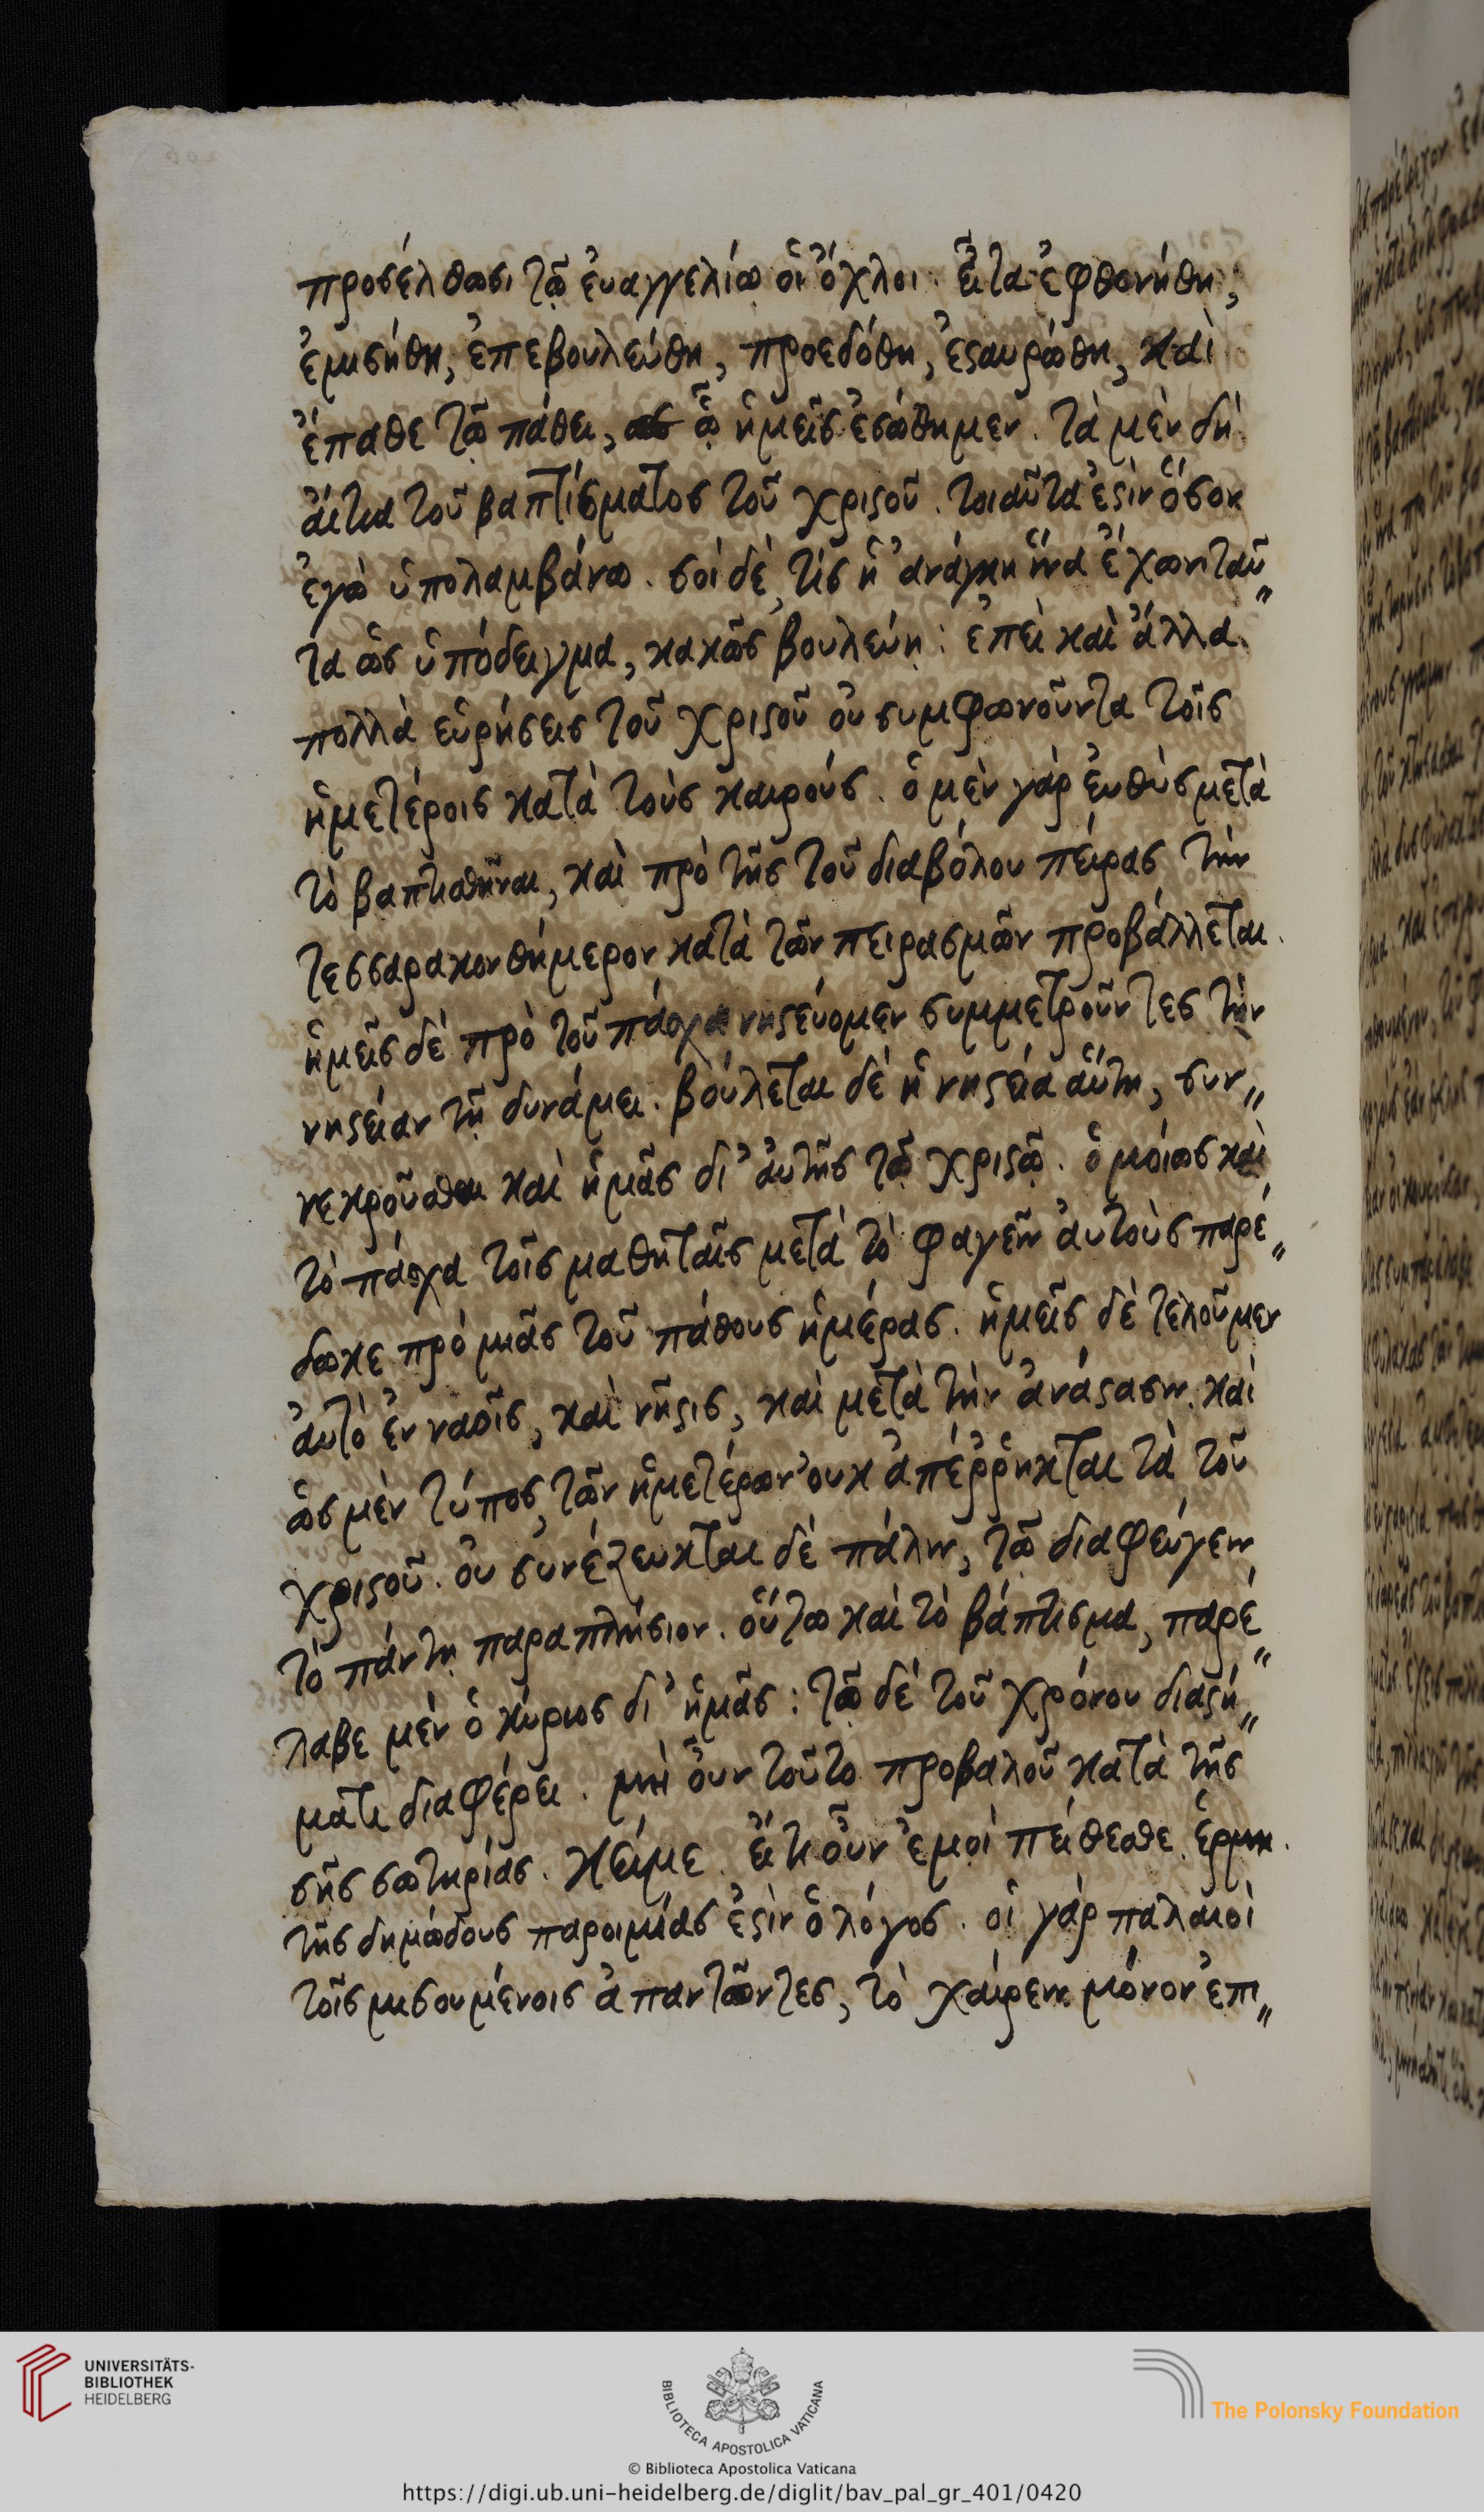 προσέλθωσι τῷ ἐυαγγελίω ὁι ὄχλοι. ἔιτα ἐφθονήθη,
ἐμισήθη, ἐπεβουλεύθη, προεδόθη, ἐσταυρώθη, καὶ
ἔπαθε τῶ πάθει, ᾧ ἡμεῖς ἐσώθημεν. τὰ μὲν δὴ
ἄιτια τοῦ βαπτίσματος τοῦ χριστοῦ. τοιαῦτα ἐστὶν ὅσον
ἐγὼ ὑπολαμβάνω. σοὶ δὲ, τίς ἡ ἀνάγκη ἵνα ἔχων ταῦ〃
τα ὡς ὑπόδειγμα, κακῶς βουλεύῃ: ἐπεὶ καὶ ἄλλα
πολλὰ εὑρήσεις τοῦ χριστοῦ ὀυ συμφωνοῦντα τοῖς
ἡμετέροις κατὰ τοὺς καιρούς. ὁ μὲν γάρ ἐυθὺς μετὰ
τὸ βαπτισθῆναι, καὶ πρὸ τῆς τοῦ διαβόλου πείρας τὴν
τεσσαρακονθήμερον κατὰ τῶν πειρασμῶν προβάλλεται.
ἡμεῖς δὲ πρὸ τοῦ πάσχα νηστεύομεν συμμετροῦντες τὴν
νηστείαν τῇ δυνάμει. βούλεται δὲ ἡ νηστεία ἅυτη, συν〃
νεκροῦσθαι καὶ ἡμᾶς δι' ἀυτῆς τῷ χριστῷ. ὁμοίως καὶ
τὸ πάσχα τοῖς μαθηταῖς μετὰ τὸ φαγεῖν ἀυτοὺς παρέ〃
δωκε πρὸ μιᾶς τοῦ πάθους ἡμέρας. ἡμεῖς δὲ τελοῦμεν
ἀυτὸ ἐν ναοῖς, καὶ νῆστις, καὶ μετὰ τὴν ἀνάστασιν. καὶ
ὡς μὲν τύπος τῶν ἡμετέρων ὀυκ ἀπέῤῥηκται τὰ τοῦ
χριστοῦ. ὀυ συνέζευκται δὲ πάλιν, τῶ διαφεύγειν
τὸ πάντῃ παραπλήσιον. ὅυτω καὶ τὸ βάπτισμα, παρέ〃
λαβε μὲν ὁ κύριος δι' ἡμᾶς: τῶ δὲ τοῦ χρόνου διαστή〃
ματι διαφέρει. μὴ ὄυν τοῦτο προβαλοῦ κατὰ τῆς
σῆς σωτηρίας. ἔι τι ὄυν ἐμοὶ πείθεσθε.
τῆς δημώδους παροιμίας ἐστὶν ὁ λόγος. οἱ γάρ παλαιοὶ
τοῖς μισουμένοις ἀπαντῶντες, τὸ χαίρειν μόνον ἐπι〃
UNIVERSITÄTS-
BIBLIOTHEK
HEIDELBERG
BIBLIOTECA APOSTOLICA VATICANA
The Polonsky Foundation
© Biblioteca Apostolica Vaticana
https://digi.ub.uni-heidelberg.de/diglit/bav_pal_gr_401/0420